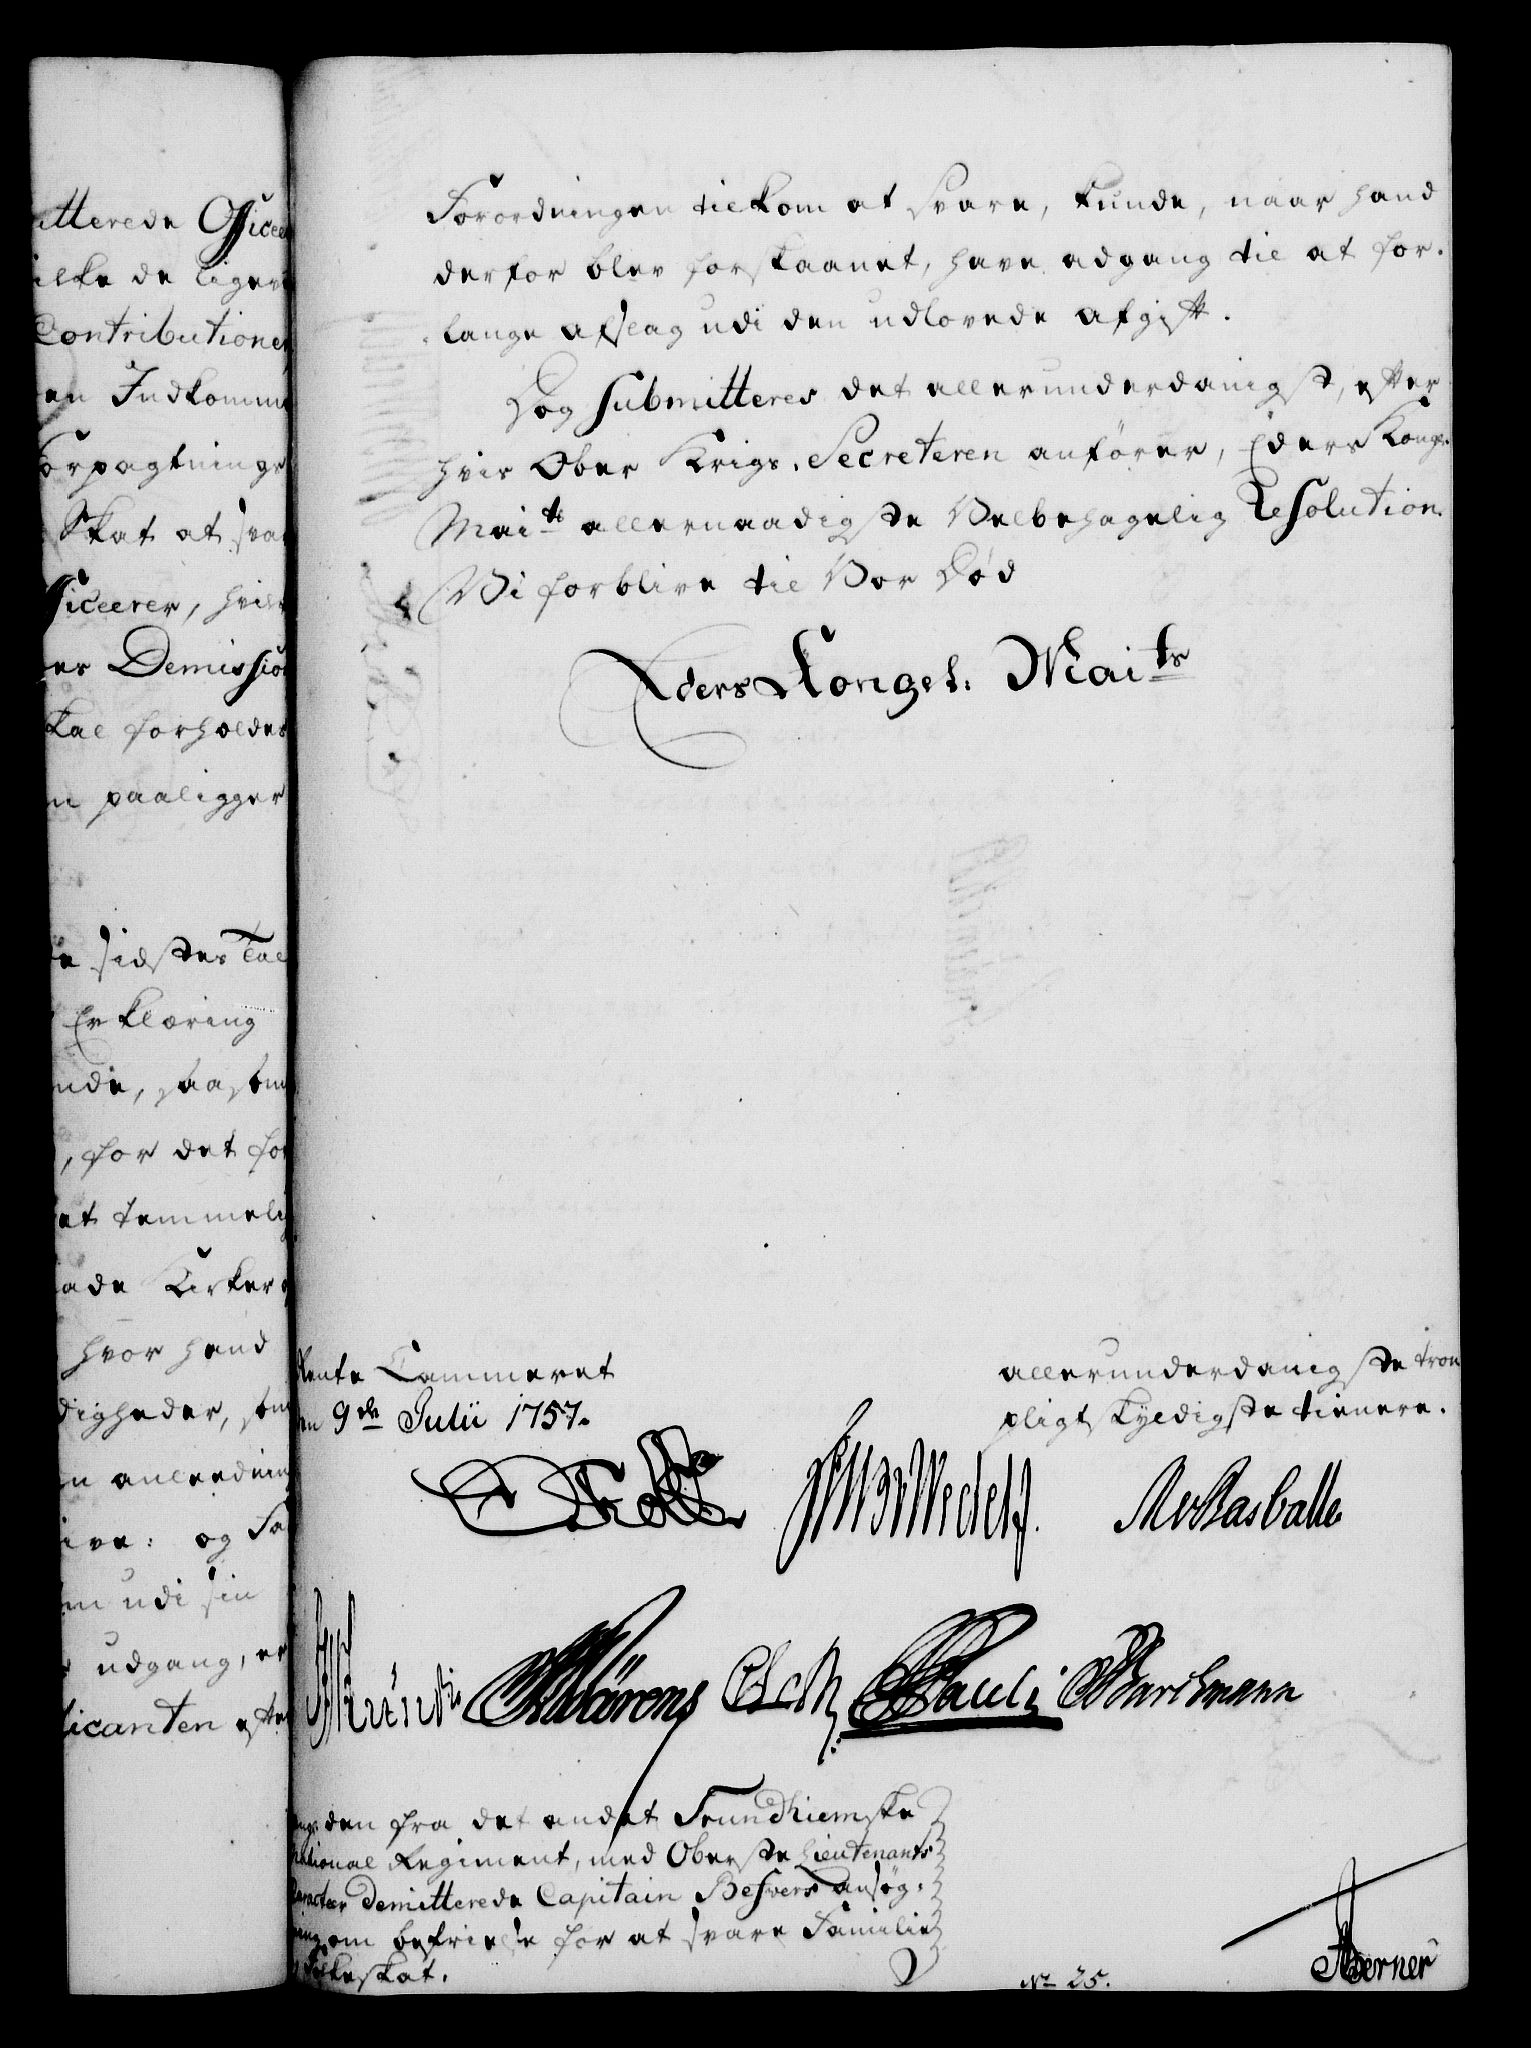 itterede Officee
ilke de ligev
Contributioner
en Indkomm
Forpagtnings
Skat at sva
ficeerer, hvilk
es Demission
kal forholdes
n paaligger
e sidstes Tal
Erklæring
nde, saasom
, for det for
et temmelig
ade Kirker
hvor hand
digheder, som
n anleedning
ive: og Fa
m udi sin
udgang, er
licanten efter
Forordningen tilkom at svare, kunde, naar hand
derfor blev forskaanet, have adgang til at for-
lange afslag udi den udlovede afgift.
Dog submitteres det allerunderdanigst, efter
hvis Ober Krigs-Secreteren anfører, Eders Kongl.
Maits allernaadigste Velbehagelig Resolution.
Vi forblive til Vor Død
Eders Kongel: Maits
Rente Cammeret
en 9de Julii 1757.
allerunderdanigste troe
pligtskyldigste tienere.
Wedel
Rasballe
Mörens Pauli Barthmann
den fra det andet Trundhiemske
National Regiment, med Oberste Lieutenants
Caracteer demitterede Capitain Besvers ansøg-
ning om befrielse for at svare Familie
Folkeskat.
No 25.
Berner